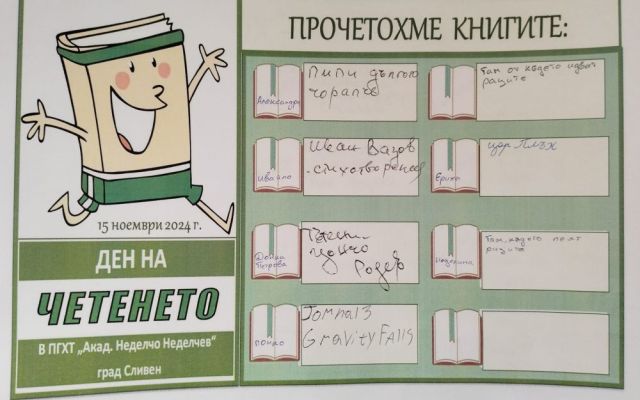 ПРОЧЕТОХМЕ КНИГИТЕ:
Александра
Пипи дългото
чорапче
Там от където идват
раците
Ивайло
Иван Вазов
-стихотворения
Ериха
цар Плъх
Донка
Петрова
Родев
Недялкина
Там, където пеят
раците
Понко
Jornal3
Gravity Falls
15 ноември 2024 г.
ДЕН НА
ЧЕТЕНЕТО
В ПГХТ „Акад. Неделчо Неделчев“
град Сливен